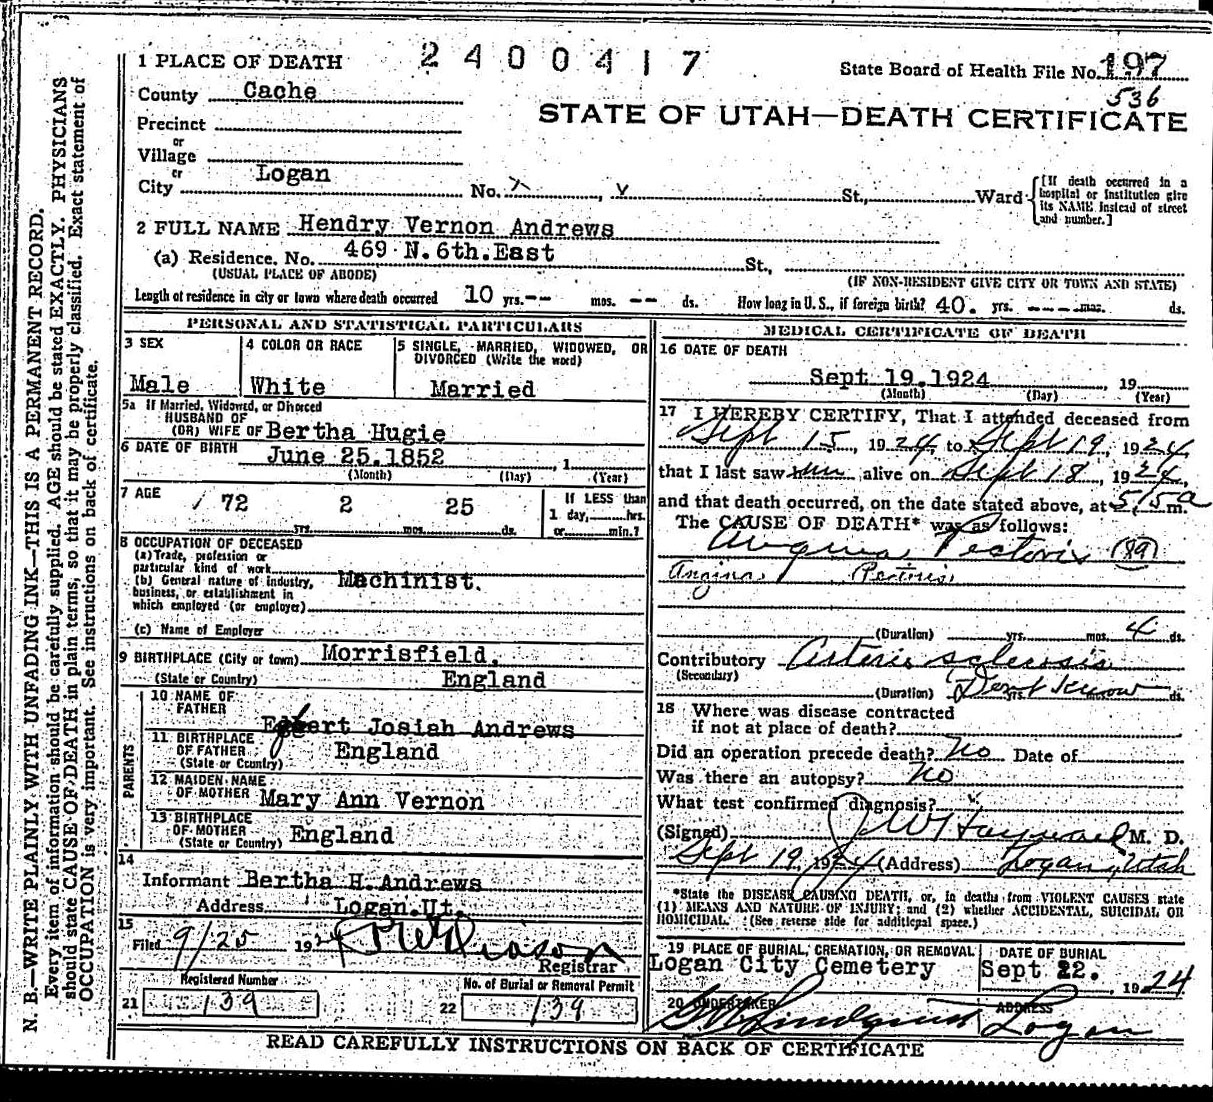 2400417
1 PLACE OF DEATH
State Board of Health File No. 197
536
County Cache
STATE OF UTAH—DEATH CERTIFICATE
Precinct
or
Village
or
City Logan No. x, v St., Ward
[If death occurred in a hospital or institution give its NAME instead of street and number.]
2 FULL NAME Hendry Vernon Andrews
(a) Residence. No. 469 N.6th.East St.,
(USUAL PLACE OF ABODE) (IF NON-RESIDENT GIVE CITY OR TOWN AND STATE)
Length of residence in city or town where death occurred 10 yrs. -- mos. -- ds. How long in U.S., if foreign birth? 40. yrs. --- mos. ds.
PERSONAL AND STATISTICAL PARTICULARS
3 SEX
Male
4 COLOR OR RACE
White
5 SINGLE, MARRIED, WIDOWED, OR DIVORCED (Write the word)
Married
5a If Married, Widowed, or Divorced
HUSBAND OF
(OR) WIFE OF Bertha Hugie
6 DATE OF BIRTH June 25.1852, 1
(Month) (Day) (Year)
7 AGE 72 yrs. 2 mos. 25 ds.
If LESS than
1 day, hrs.
or min.?
8 OCCUPATION OF DECEASED
(a) Trade, profession or
particular kind of work
(b) General nature of industry,
business, or establishment in
which employed (or employer)
Machinist.
(c) Name of Employer
9 BIRTHPLACE (City or town) Morrisfield.
(State or Country) England
PARENTS
10 NAME OF
FATHER
Egbert Josiah Andrews
11 BIRTHPLACE
OF FATHER
(State or Country)
England
12 MAIDEN NAME
OF MOTHER Mary Ann Vernon
13 BIRTHPLACE
OF MOTHER
(State or Country) England
14
Informant Bertha H.Andrews
Address Logan.Ut.
15
Filed 9/25 192
Registrar
Registered Number
21 139
No. of Burial or Removal Permit
22 139
MEDICAL CERTIFICATE OF DEATH
16 DATE OF DEATH
Sept 19.1924, 19
(Month) (Day) (Year)
17 I HEREBY CERTIFY, That I attended deceased from
Sept 15, 1924, to Sept 19, 1924,
that I last saw him alive on Sept 18, 1924,
and that death occurred, on the date stated above, at 5:15a m.
The CAUSE OF DEATH* was as follows:
Angina Pectoris (89)
Angina Pectoris
(Duration) yrs. mos. 4 ds.
Contributory Arterio sclerosis
(Secondary)
(Duration) Dont Know yrs. ds.
18 Where was disease contracted
if not at place of death?
Did an operation precede death? No Date of
Was there an autopsy? No
What test confirmed diagnosis? x
(Signed) J W Hayward M. D.
Sept 19, 1924 (Address) Logan, Utah
*State the DISEASE CAUSING DEATH, or, in deaths from VIOLENT CAUSES state
(1) MEANS AND NATURE OF INJURY; and (2) whether ACCIDENTAL, SUICIDAL OR
HOMICIDAL. (See reverse side for additional space.)
19 PLACE OF BURIAL, CREMATION, OR REMOVAL
Logan City Cemetery
DATE OF BURIAL
Sept 22. , 1924
20 UNDERTAKER
Lindquist
ADDRESS
Logan
READ CAREFULLY INSTRUCTIONS ON BACK OF CERTIFICATE
N. B.—WRITE PLAINLY WITH UNFADING INK—THIS IS A PERMANENT RECORD.
Every item of information should be carefully supplied. AGE should be stated EXACTLY. PHYSICIANS
should state CAUSE OF DEATH in plain terms, so that it may be properly classified. Exact statement of
OCCUPATION is very important. See instructions on back of certificate.